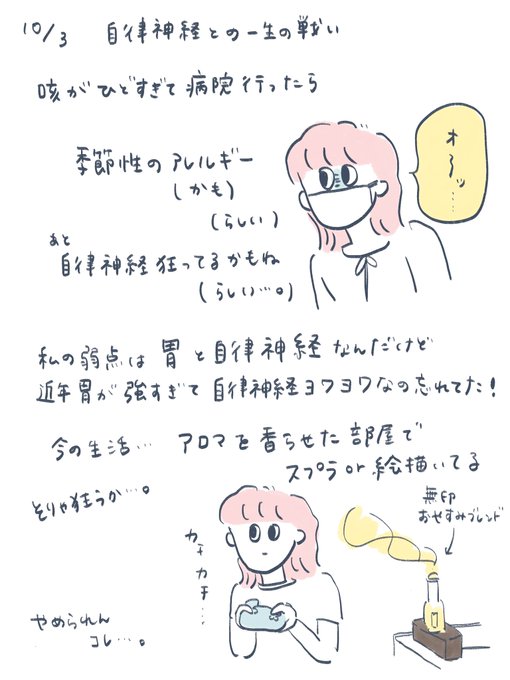 10/3 自律神経との一生の戦い
咳がひどすぎて病院行ったら
オ〜ッ……
季節性のアレルギー
(かも)
(らしい)
あと
自律神経狂ってるかもね
(らしい…。)
私の弱点は胃と自律神経なんだけど
近年胃が強すぎて自律神経ヨワヨワなの忘れてた!
今の生活… アロマを香らせた部屋で
スプラor絵描いてる
そりゃ狂うか…。
無印
おやすみブレンド
カチカチ…
やめられん
コレ…。